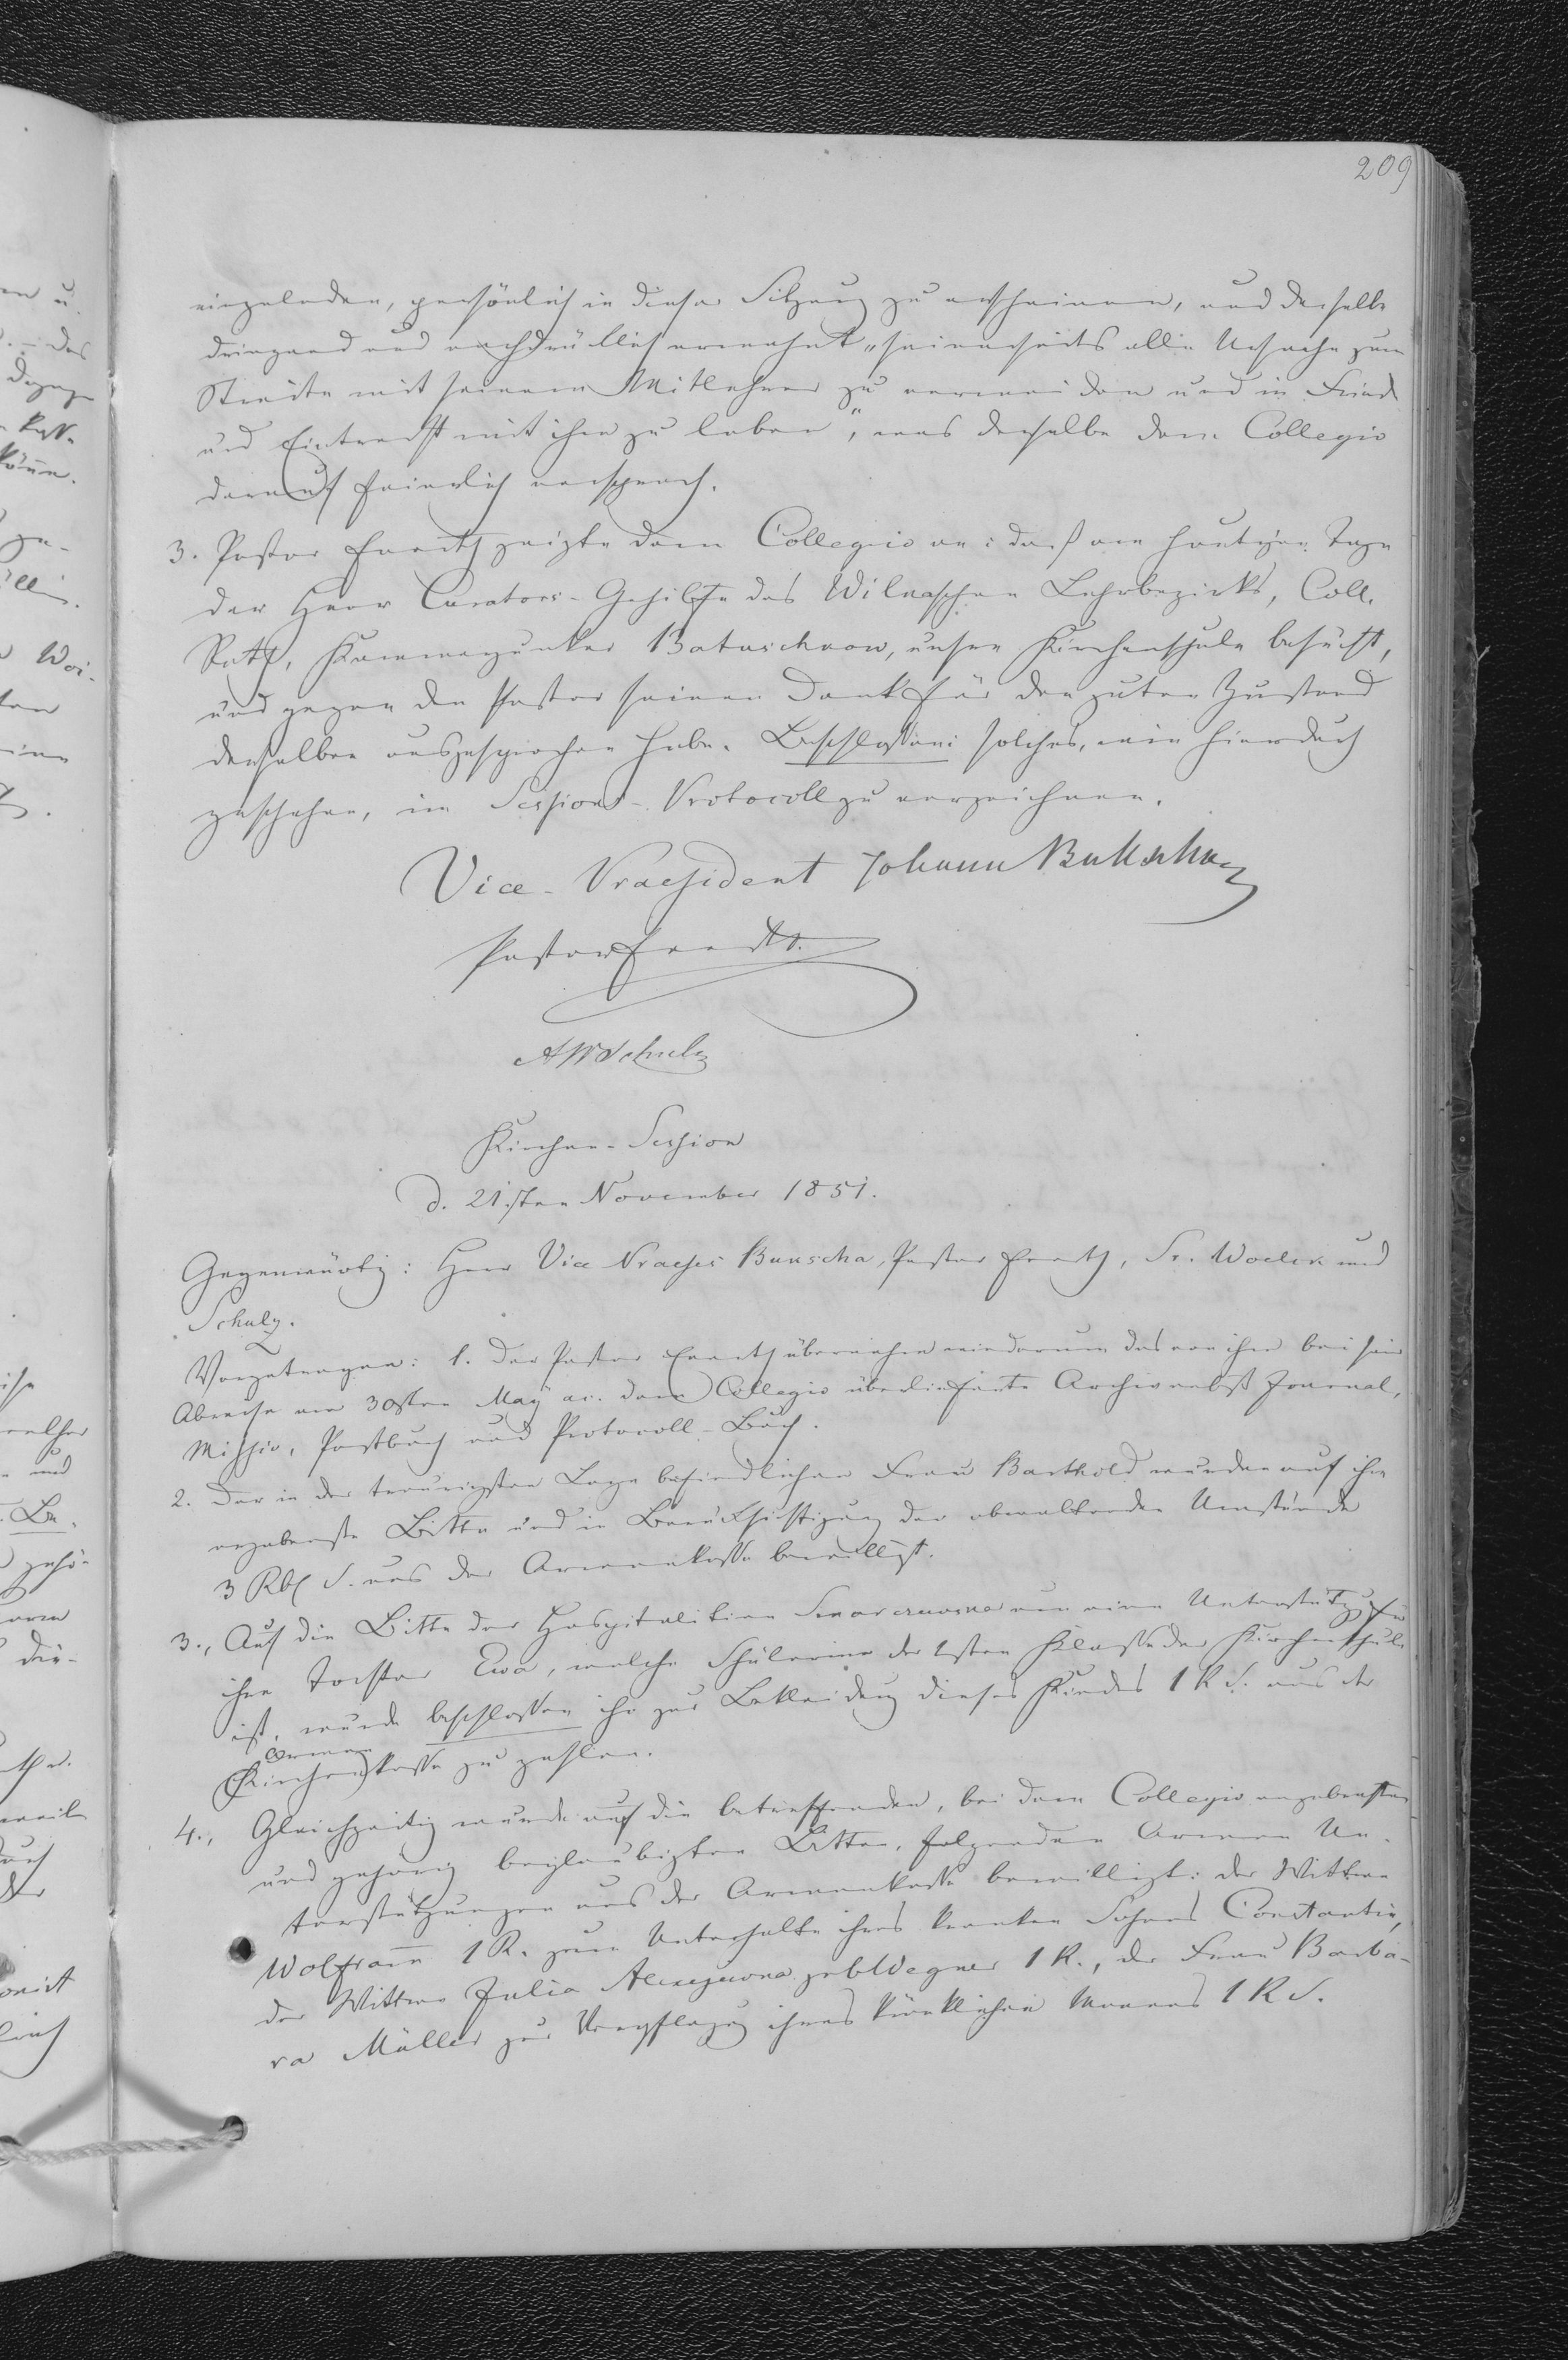 209
einzuladen, persönlich in dieser Sitzung zu erscheinen, und derselbe
dringend und nachdrücklich ermahnt „seinerseits alle Ursache zum
Streite mit seinem Mitlehrer zu vermeiden und in Friede
und Eintracht mit ihm zu leben“, was derselbe dem Collegio
darauf feierlich versprach.
3. Pastor zeigte dem Collegio an: daß am heutigen Tage
der Herr Curators-Gehilfe des Wilnaschen Lehrbezirks, Coll.
Rath, Kammerjunker Batuschkow, unsere Kirchenschule besucht,
und gegen den Pastor seinen Dank für den guten Zustand
derselben ausgesprochen habe. Beschlossen: solches, wie hierdurch
geschehen, im Sessions-Protocoll zu verzeichnen.
Vice-Praesident Johann
Pastor
AW Schulz
Kirchen-Session
d. 21sten November 1851.
Gegenwärtig: Herr Vice Praeses Pastor und
Schulz.
Vorgetragen: 1. Der Pastor übernahm wiederum das von ihm bei seiner
Abreise am 30sten May ac. dem Collegio überlieferte Archiv nebst Journal,
Missiv, Postbuch und Protocoll-Buch.
2. Der in der traurigsten Lage befindlichen Frau Barthold wurden auf ihre
ergebenste Bitte und in Berücksichtigung der obwaltenden Umstände
3 Rbl S. aus der Armenkasse bewilligt.
3., Auf die Bitte der Hospitalitin um eine Unterstützung für
ihre Tochter Ewa, welche Schülerin der 1sten Klasse der Kirchenschule
ist, wurde beschlossen ihr zur Bekleidung dieses Kindes 1 R S. aus der
Armen
(Kirchen)kasse zu zahlen.
4., Gleichzeitig wurde auf die betreffenden, bei dem Collegio angebrachten
und gehörig beglaubigten Bitten, folgenden Armen Un-
terstützungen aus der Armenkasse bewilligt: der Wittwe
Wolfram̅ 1 R. zum Unterhalte ihres kranken Sohnes Constantin,
der Wittwe Julia Alexejewna geb Wegner 1 R., der Frau Barba-
ra Müller zur Verpflegung ihres kränklichen Mannes 1 R S.